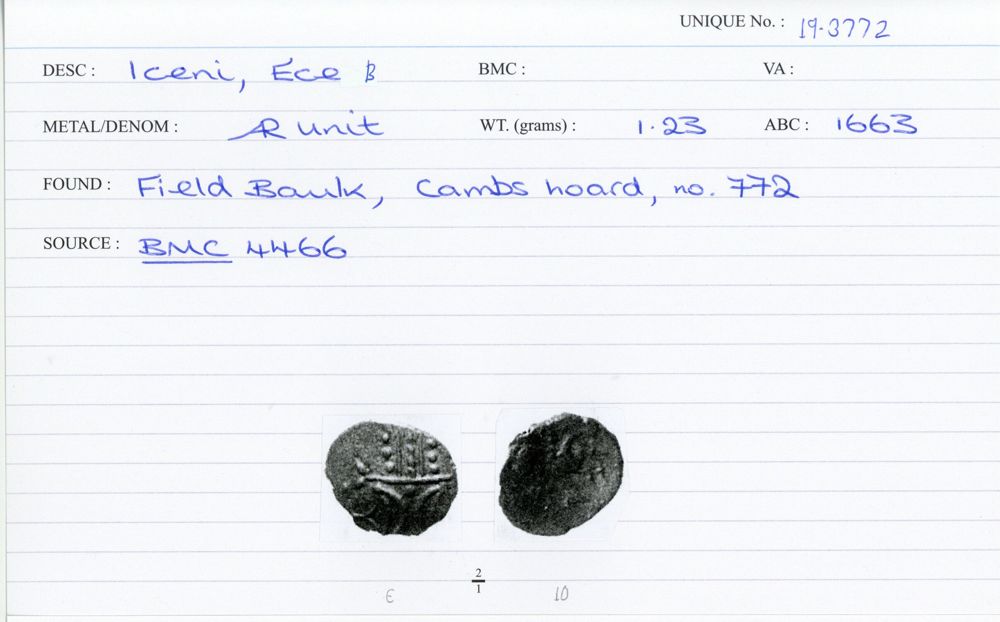 UNIQUE No. : 19-3772
DESC : Iceni, Ece B BMC : VA :
METAL/DENOM : AR unit WT. (grams) : 1.23 ABC : 1663
FOUND : Field Baulk, Cambs hoard, no. 772
SOURCE : BMC 4466
2
1
E 10